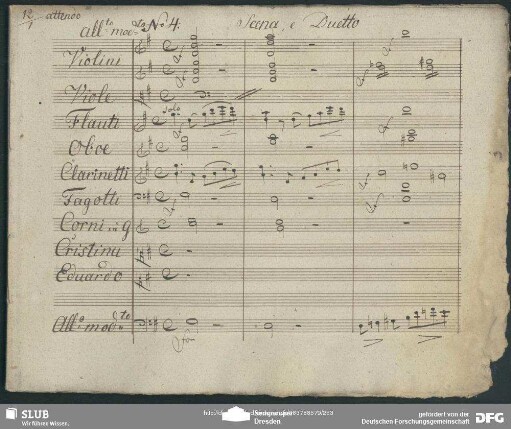 12 attenoo
1
All:to mod:to No 4: Scena, e Duetto
Violini
Viole
Flauti
Solo
Oboe
Clarinetti
Fagotti
Corni in G
Cristina
Eduardo
All:o mod:to
SLUB
Wir führen Wissen.
Dresden
gefördert von der
Deutschen Forschungsgemeinschaft
DFG